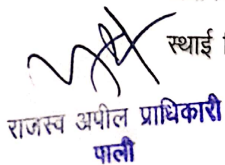 स्थाई
राजस्व अपील प्राधिकारी
पाली